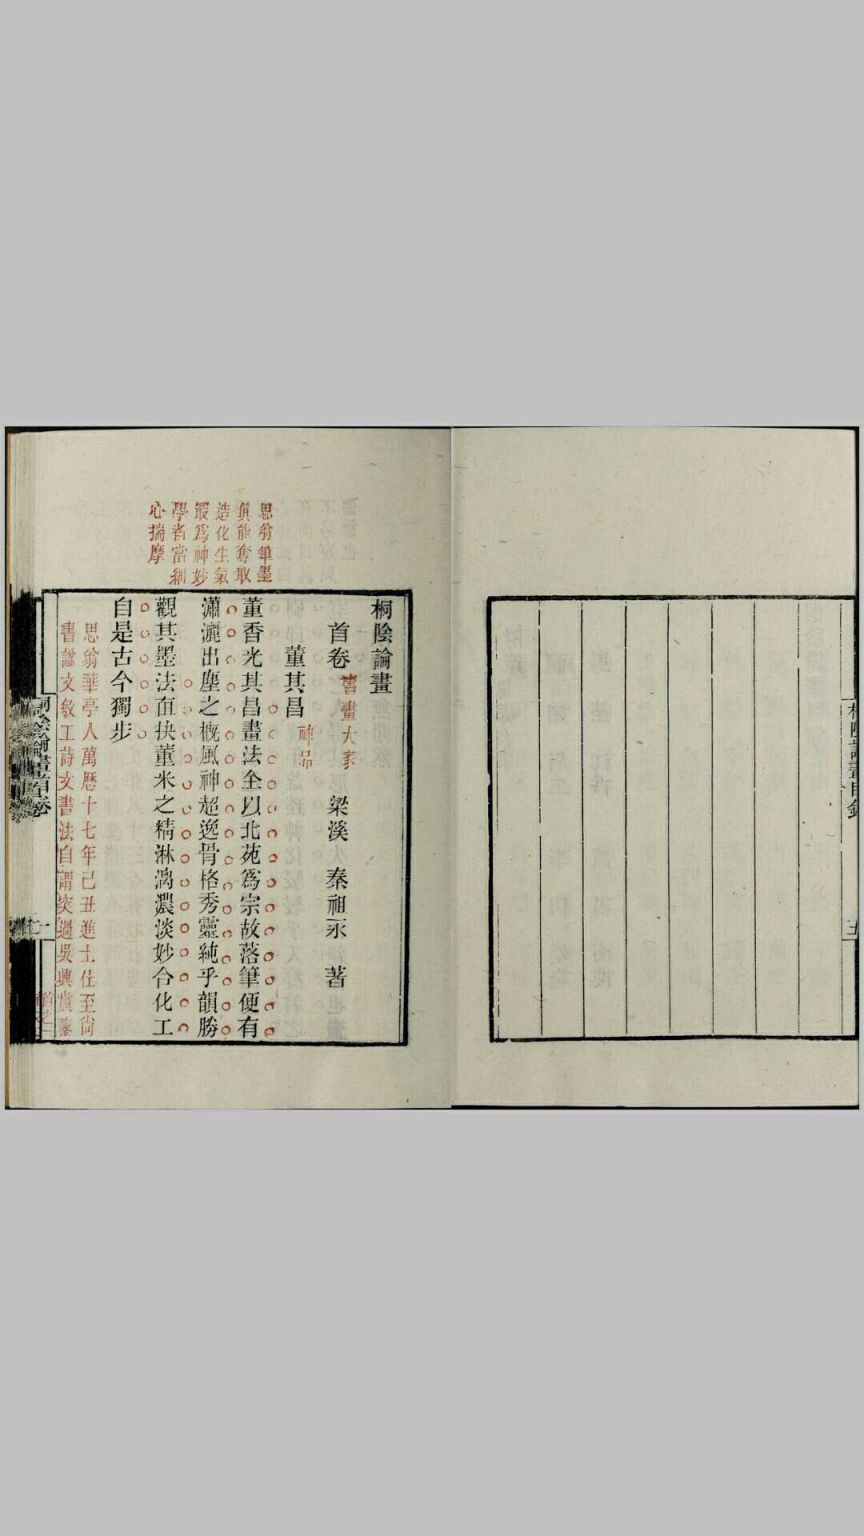 桐陰論畫目錄
五
思翁筆墨
真能奪取
造化生氣
最為神妙
學者當細
心揣摩
桐陰論畫
首卷 書畫大家 梁溪 秦祖永 著
董其昌 神品
董香光其昌畫法全以北苑為宗故落筆便有
瀟灑出塵之概風神超逸骨格秀靈純乎韻勝
觀其墨法直抉董米之精淋漓濃淡妙合化工
自是古今獨步
思翁華亭人萬曆十七年己丑進士仕至尚
書諡文敏工詩文書法自謂突過吳興賞鑒
桐陰論畫首卷
一